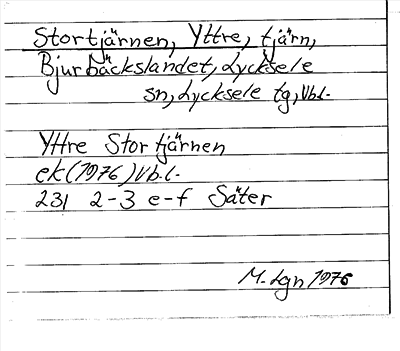 Stortjärnen, Yttre, tjärn,
Bjurbäckslandet, Lycksele
sn, Lycksele tg, Vbl.
Yttre Stortjärnen
ek (1976) Vb.l.
231 2-3 e-f Säter
M. Lgn 1976